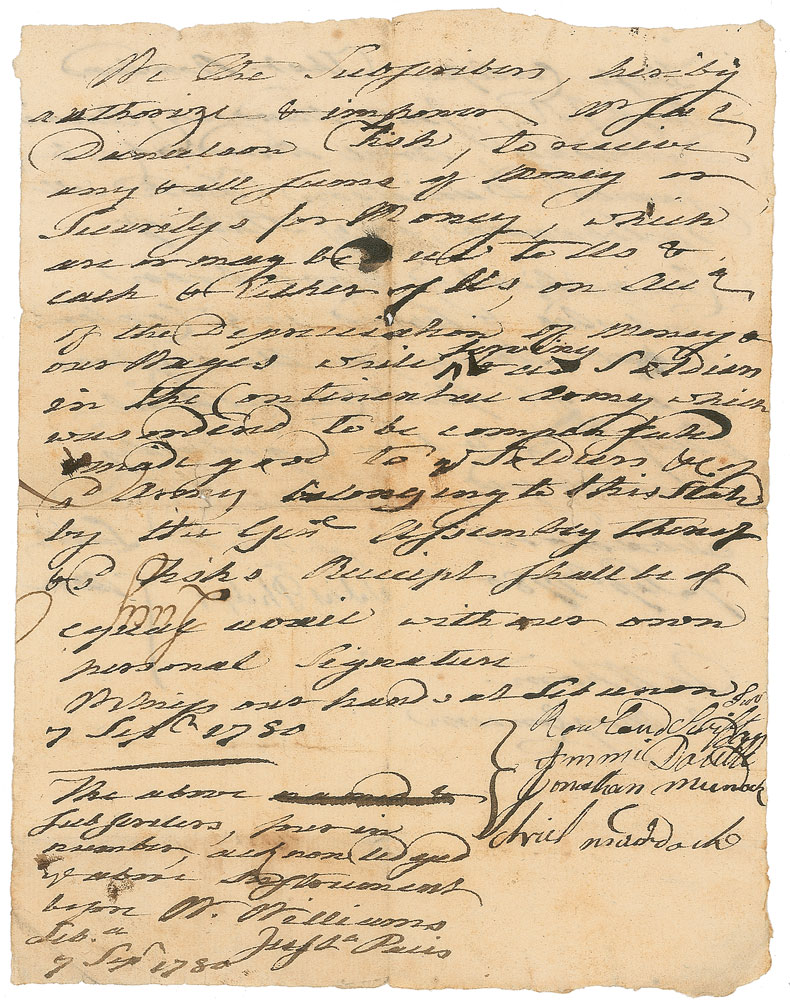 We the Subscribers, hereby
authorize & impower Mr
Danielson Fish, to receive
any & all sums of Money or
Securitys for Money, which
are or may be due to Us &
each & Either of Us, on Acct
of the Depreciation of Money &
our Wages while serving as Soldiers
in the Continental Army which
was ordered to be compensated
& made good to ye Soldiers &c of
sd Army belonging to this State
by the Genl Assembly thereof
& sd Fishs Receipt shall be of
equal avail with our own
personal Signature
Witness our hands at Lebanon
7 Septr 1780
Rowland Swift
Jonathan Murdock
Ariel murdock
The above
subscribers, four in
number, acknowledged
ye above Instrument
before W. Williams
Leb.n Just.a Pacis
7 Sepr 1780
July